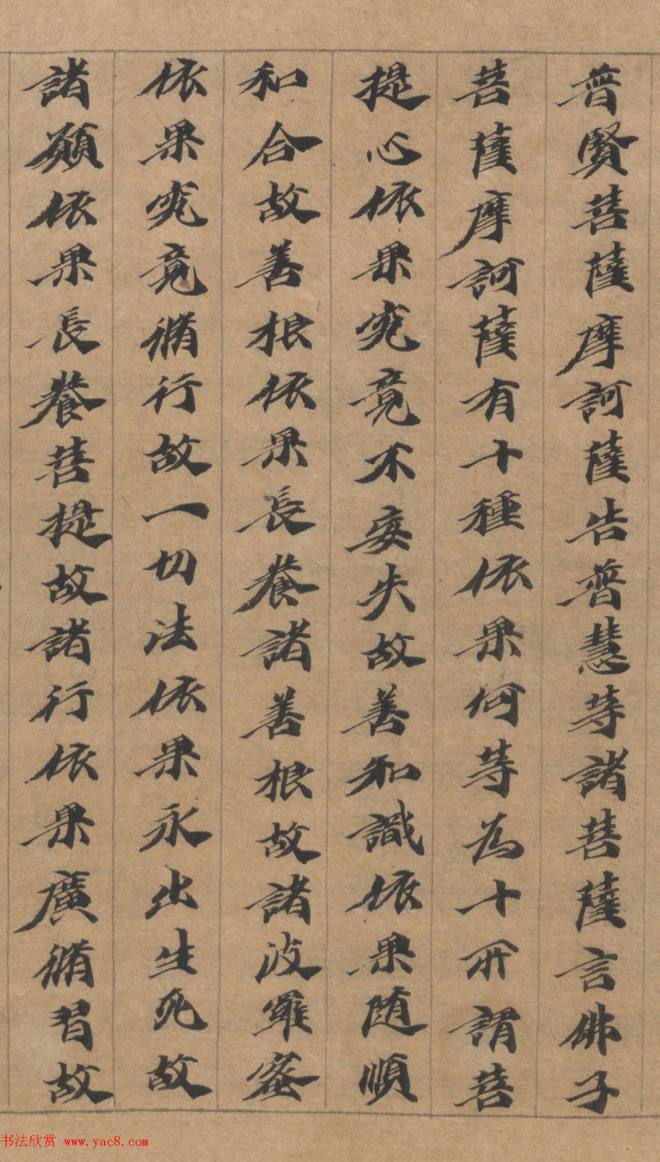 普賢菩薩摩訶薩告普慧等諸菩薩言佛子
菩薩摩訶薩有十種依果何等為十所謂菩
提心依果究竟不妄失故善知識依果随順
和合故善根依果長養諸善根故諸波羅蜜
依果究竟脩行故一切法依果永出生死故
諸願依果長養菩提故諸行依果廣脩習故
书法欣赏 www.yac8.com